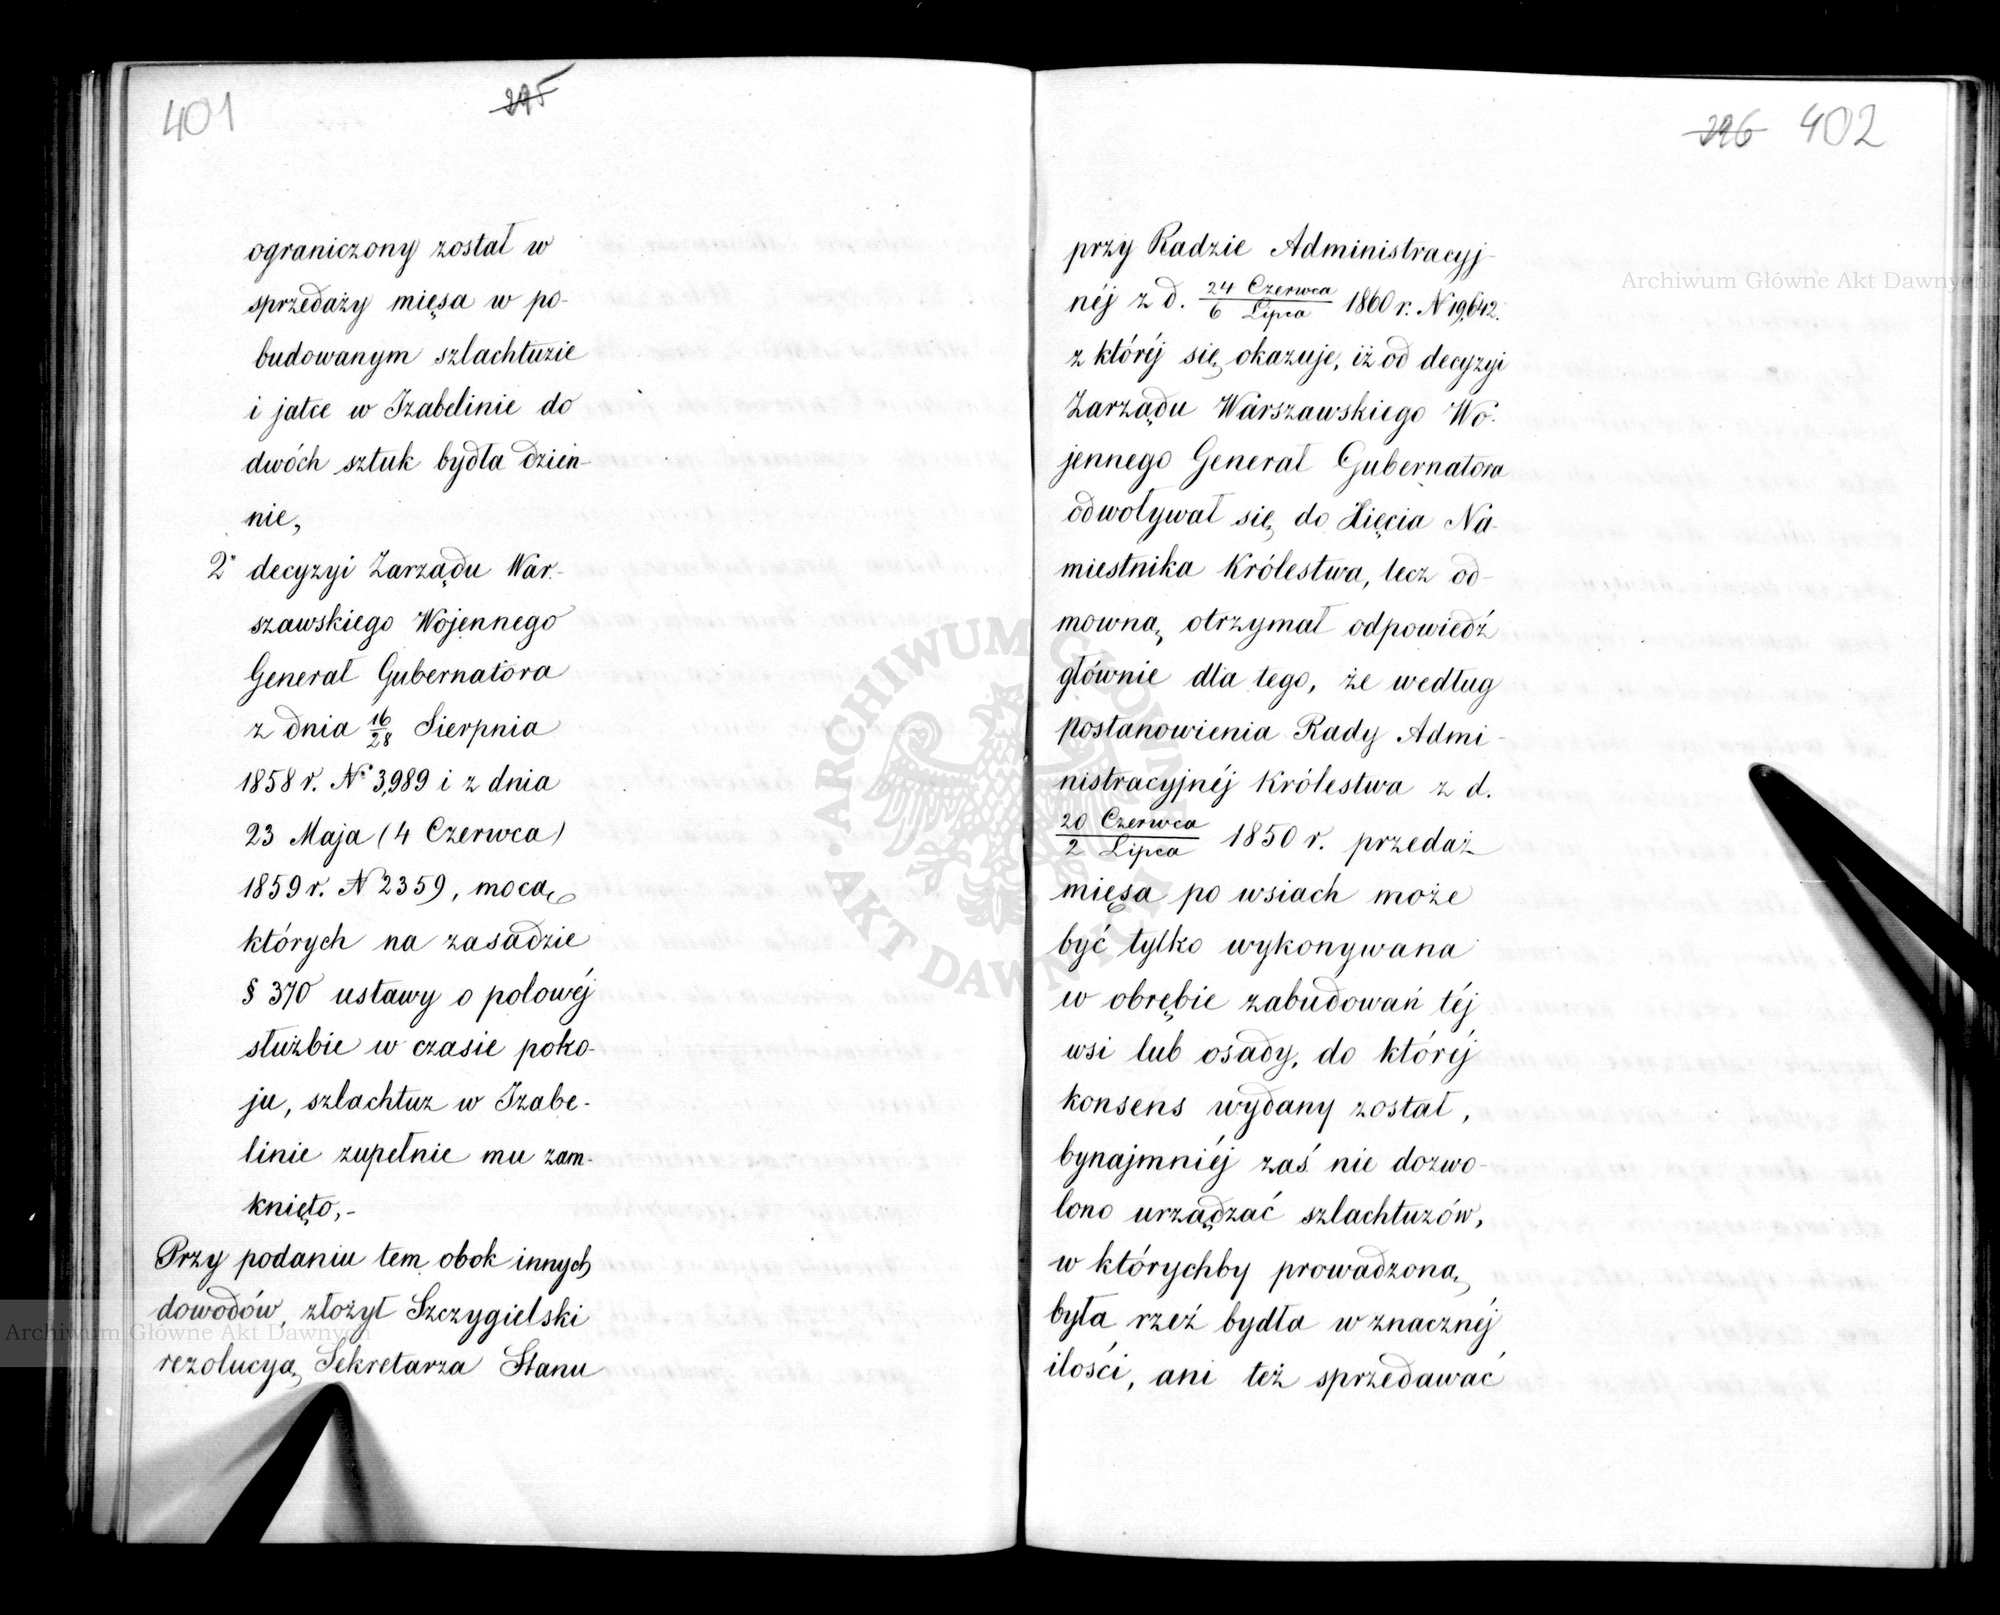 401
295
ograniczony został w
sprzedaży mięsa w po-
budowanym szlachtuzie
i jatce w Izabelinie do
dwóch sztuk bydła dzien-
nie,
2° decyzyi Zarządu War-
szawskiego Wojennego
Generał Gubernatora
z dnia 16/28 Sierpnia
1858 r. № 3,989 i z dnia
23 Maja (4 Czerwca)
1859 r. № 2359, mocą
których na zasadzie
§ 370 ustawy o polowéj
służbie w czasie poko-
ju, szlachtuz w Izabe-
linie zupełnie mu zam-
knięto,-
Przy podaniu tem obok innych
dowodów, złożył Szczygielski
rezolucyą Sekretarza Stanu
296 402
przy Radzie Administracyj-
néj z d. 24 Czerwca/6 Lipca 1860 r. № 19,642.
z któréj się okazuje, iż od decyzyi
Zarządu Warszawskiego Wo-
jennego Generał Gubernatora
odwoływał się do Xięcia Na-
miestnika Królestwa, lecz od-
mowną otrzymał odpowiedź
głównie dla tego, że według
postanowienia Rady Admi-
nistracyjnéj Królestwa z d.
20 Czerwca/2 Lipca 1850 r. przedaż
mięsa po wsiach może
być tylko wykonywana
w obrębie zabudowań téj
wsi lub osady, do któréj
konsens wydany został,
bynajmniéj zaś nie dozwo-
lono urządzać szlachtuzów,
w którychby prowadzoną
była rzeź bydła w znacznéj
ilości, ani też sprzedawać
Archiwum Główne Akt Dawnych
Archiwum Główne Akt Dawnych
ARCHIWUM GŁÓWNE AKT DAWNYCH